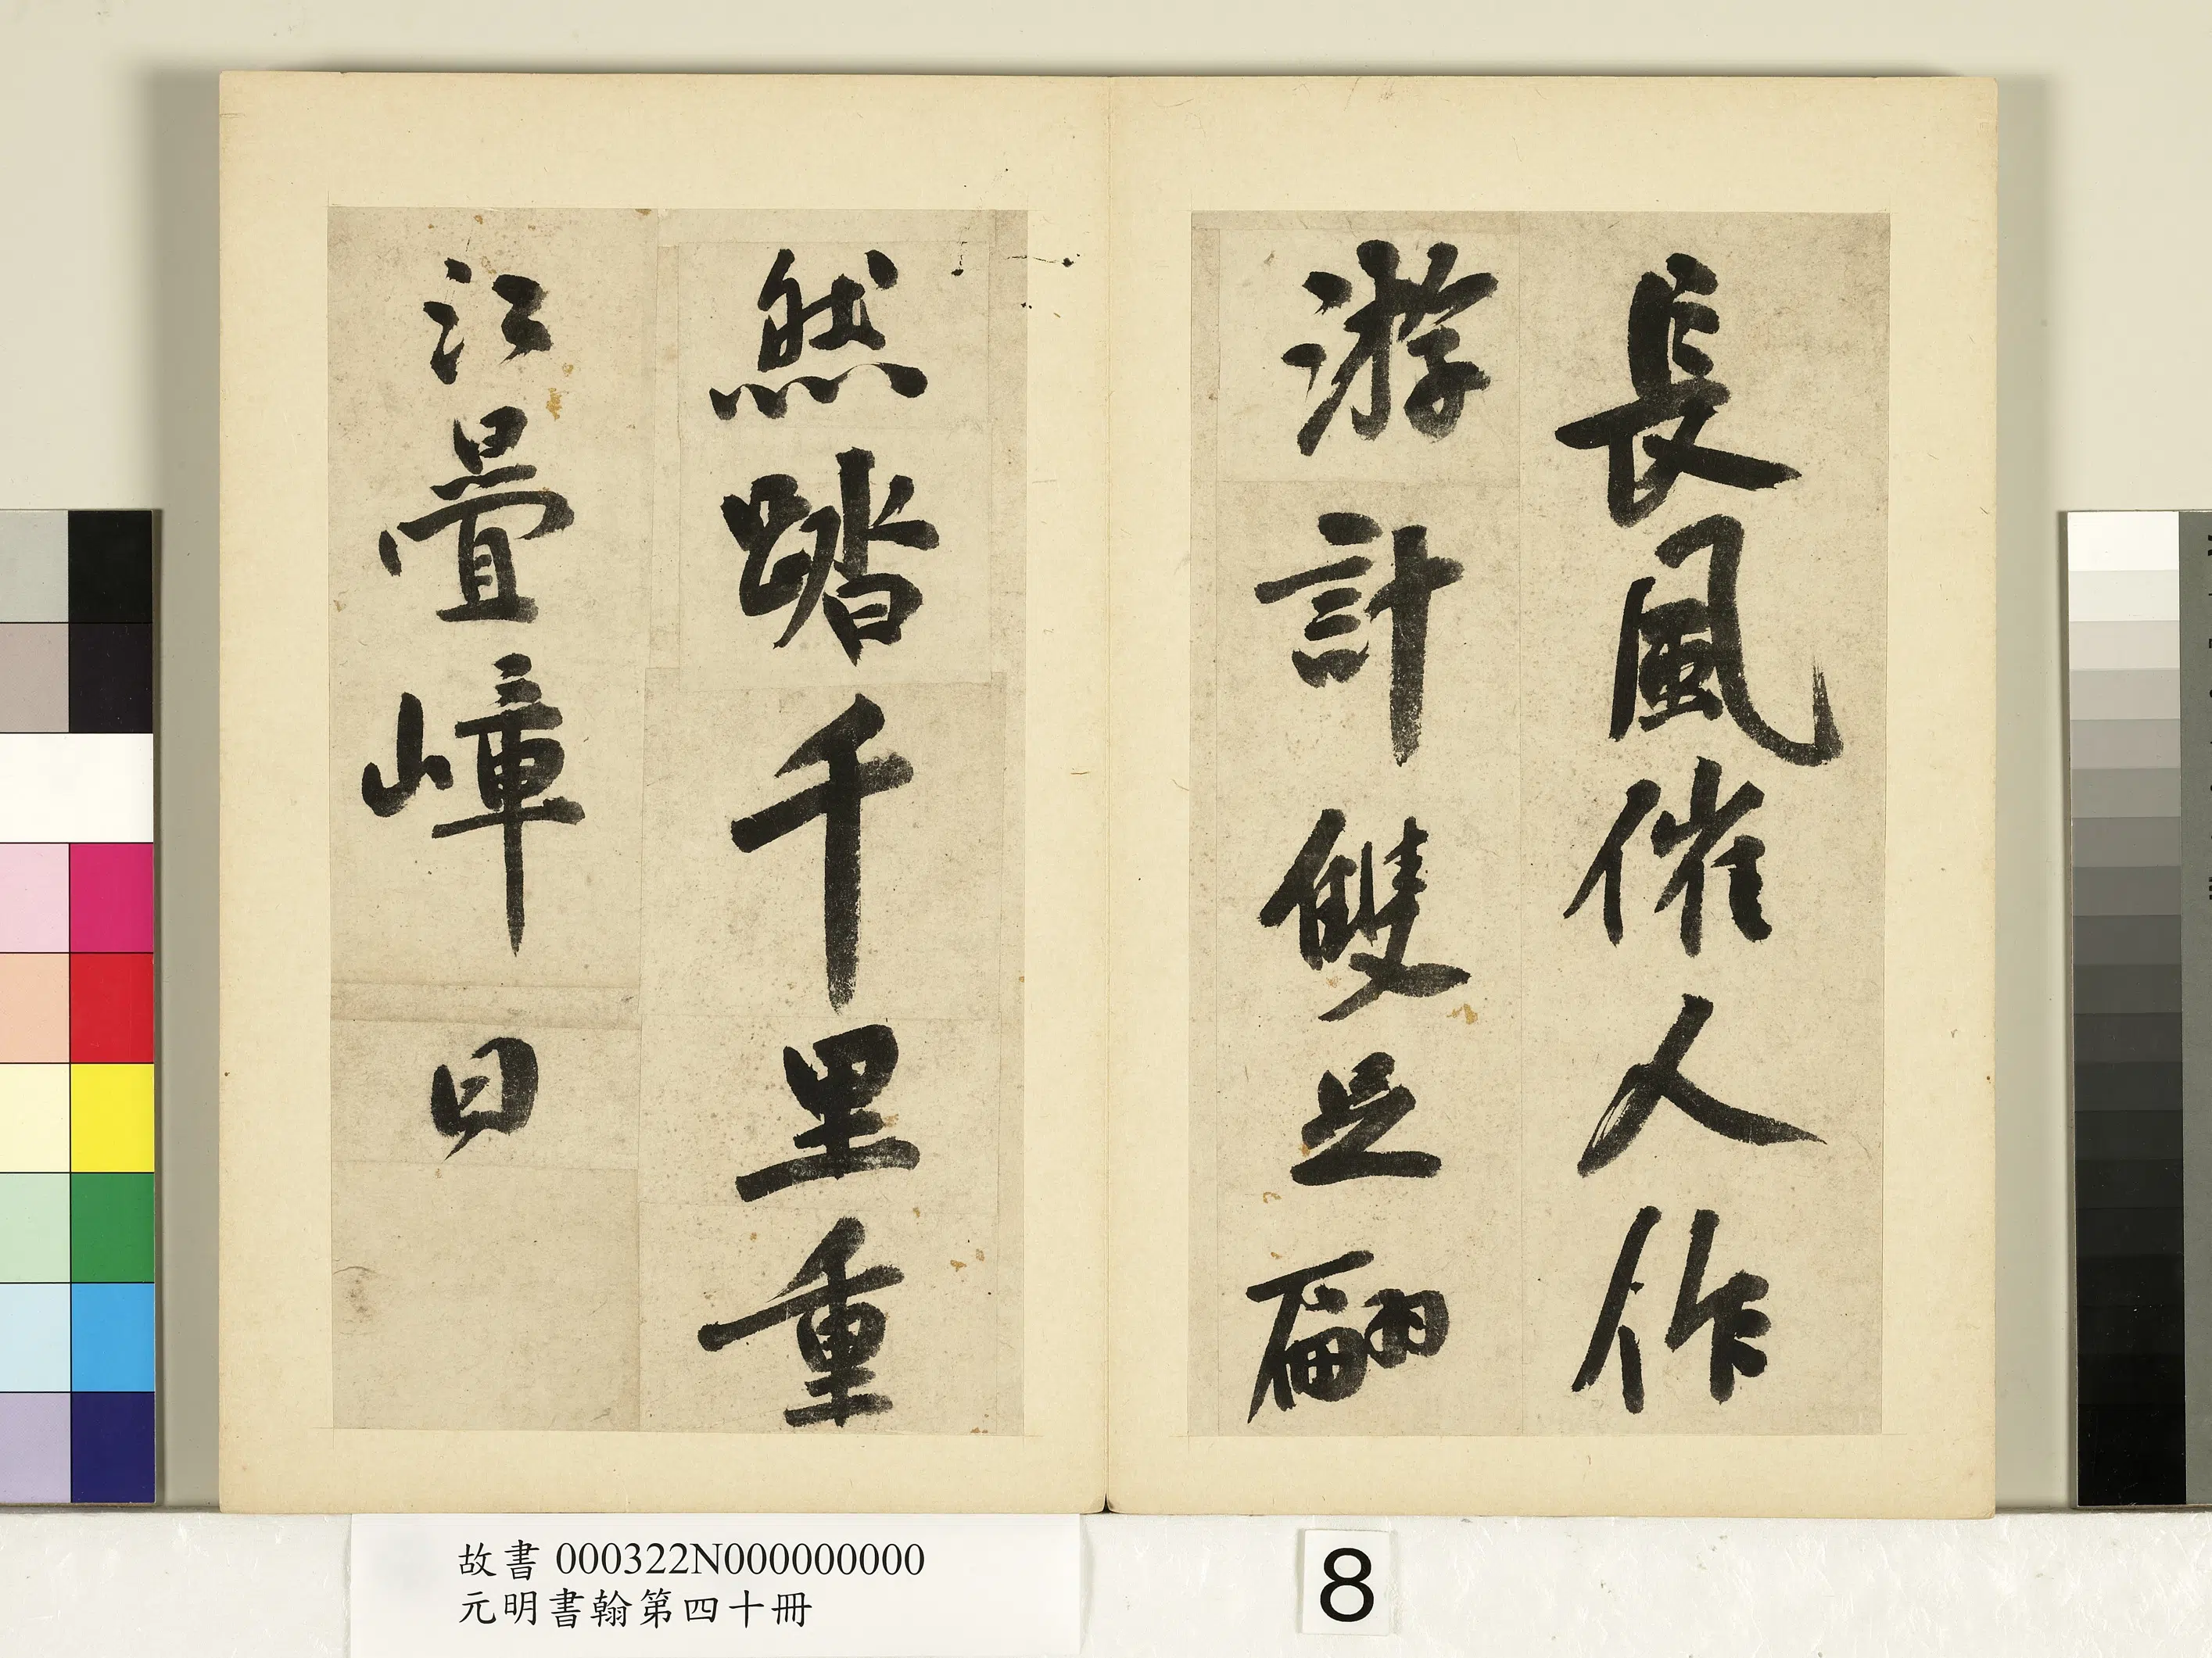 長風催人作
游計雙足翩
然踏千里重
江疊嶂日
故書 000322N000000000
元明書翰第四十冊
8